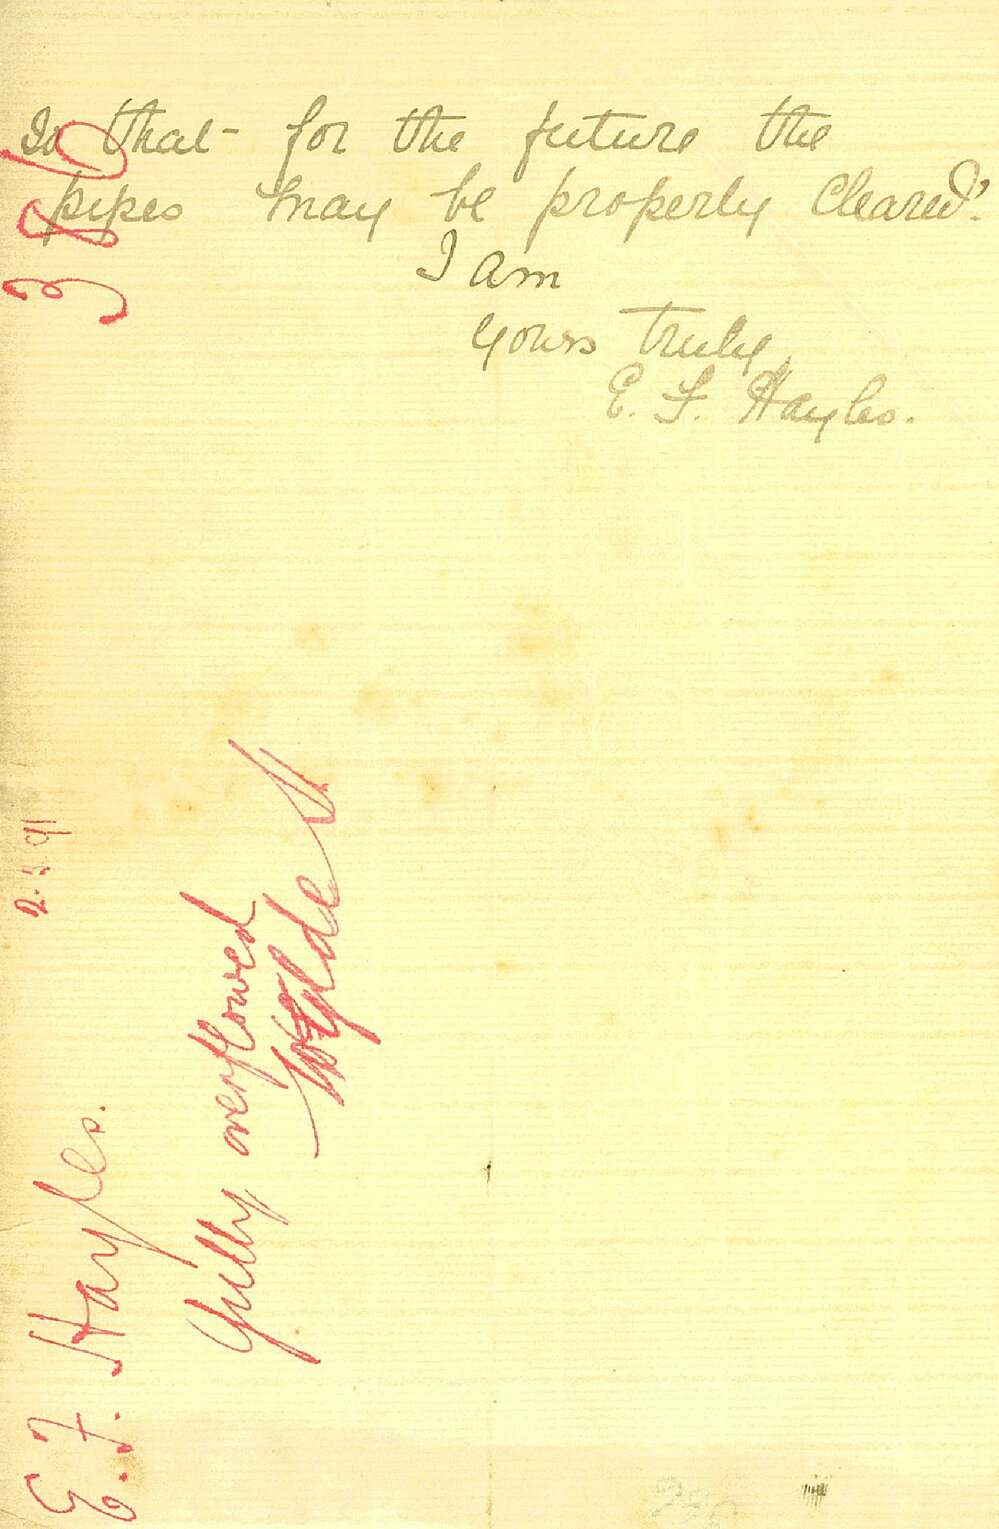 So that for the future the
pipes may be properly cleared.
I am
Yours truly
E. F. Hayles.
386
E. F. Hayles.
2.4.91
Gully overflowed
Wylde St